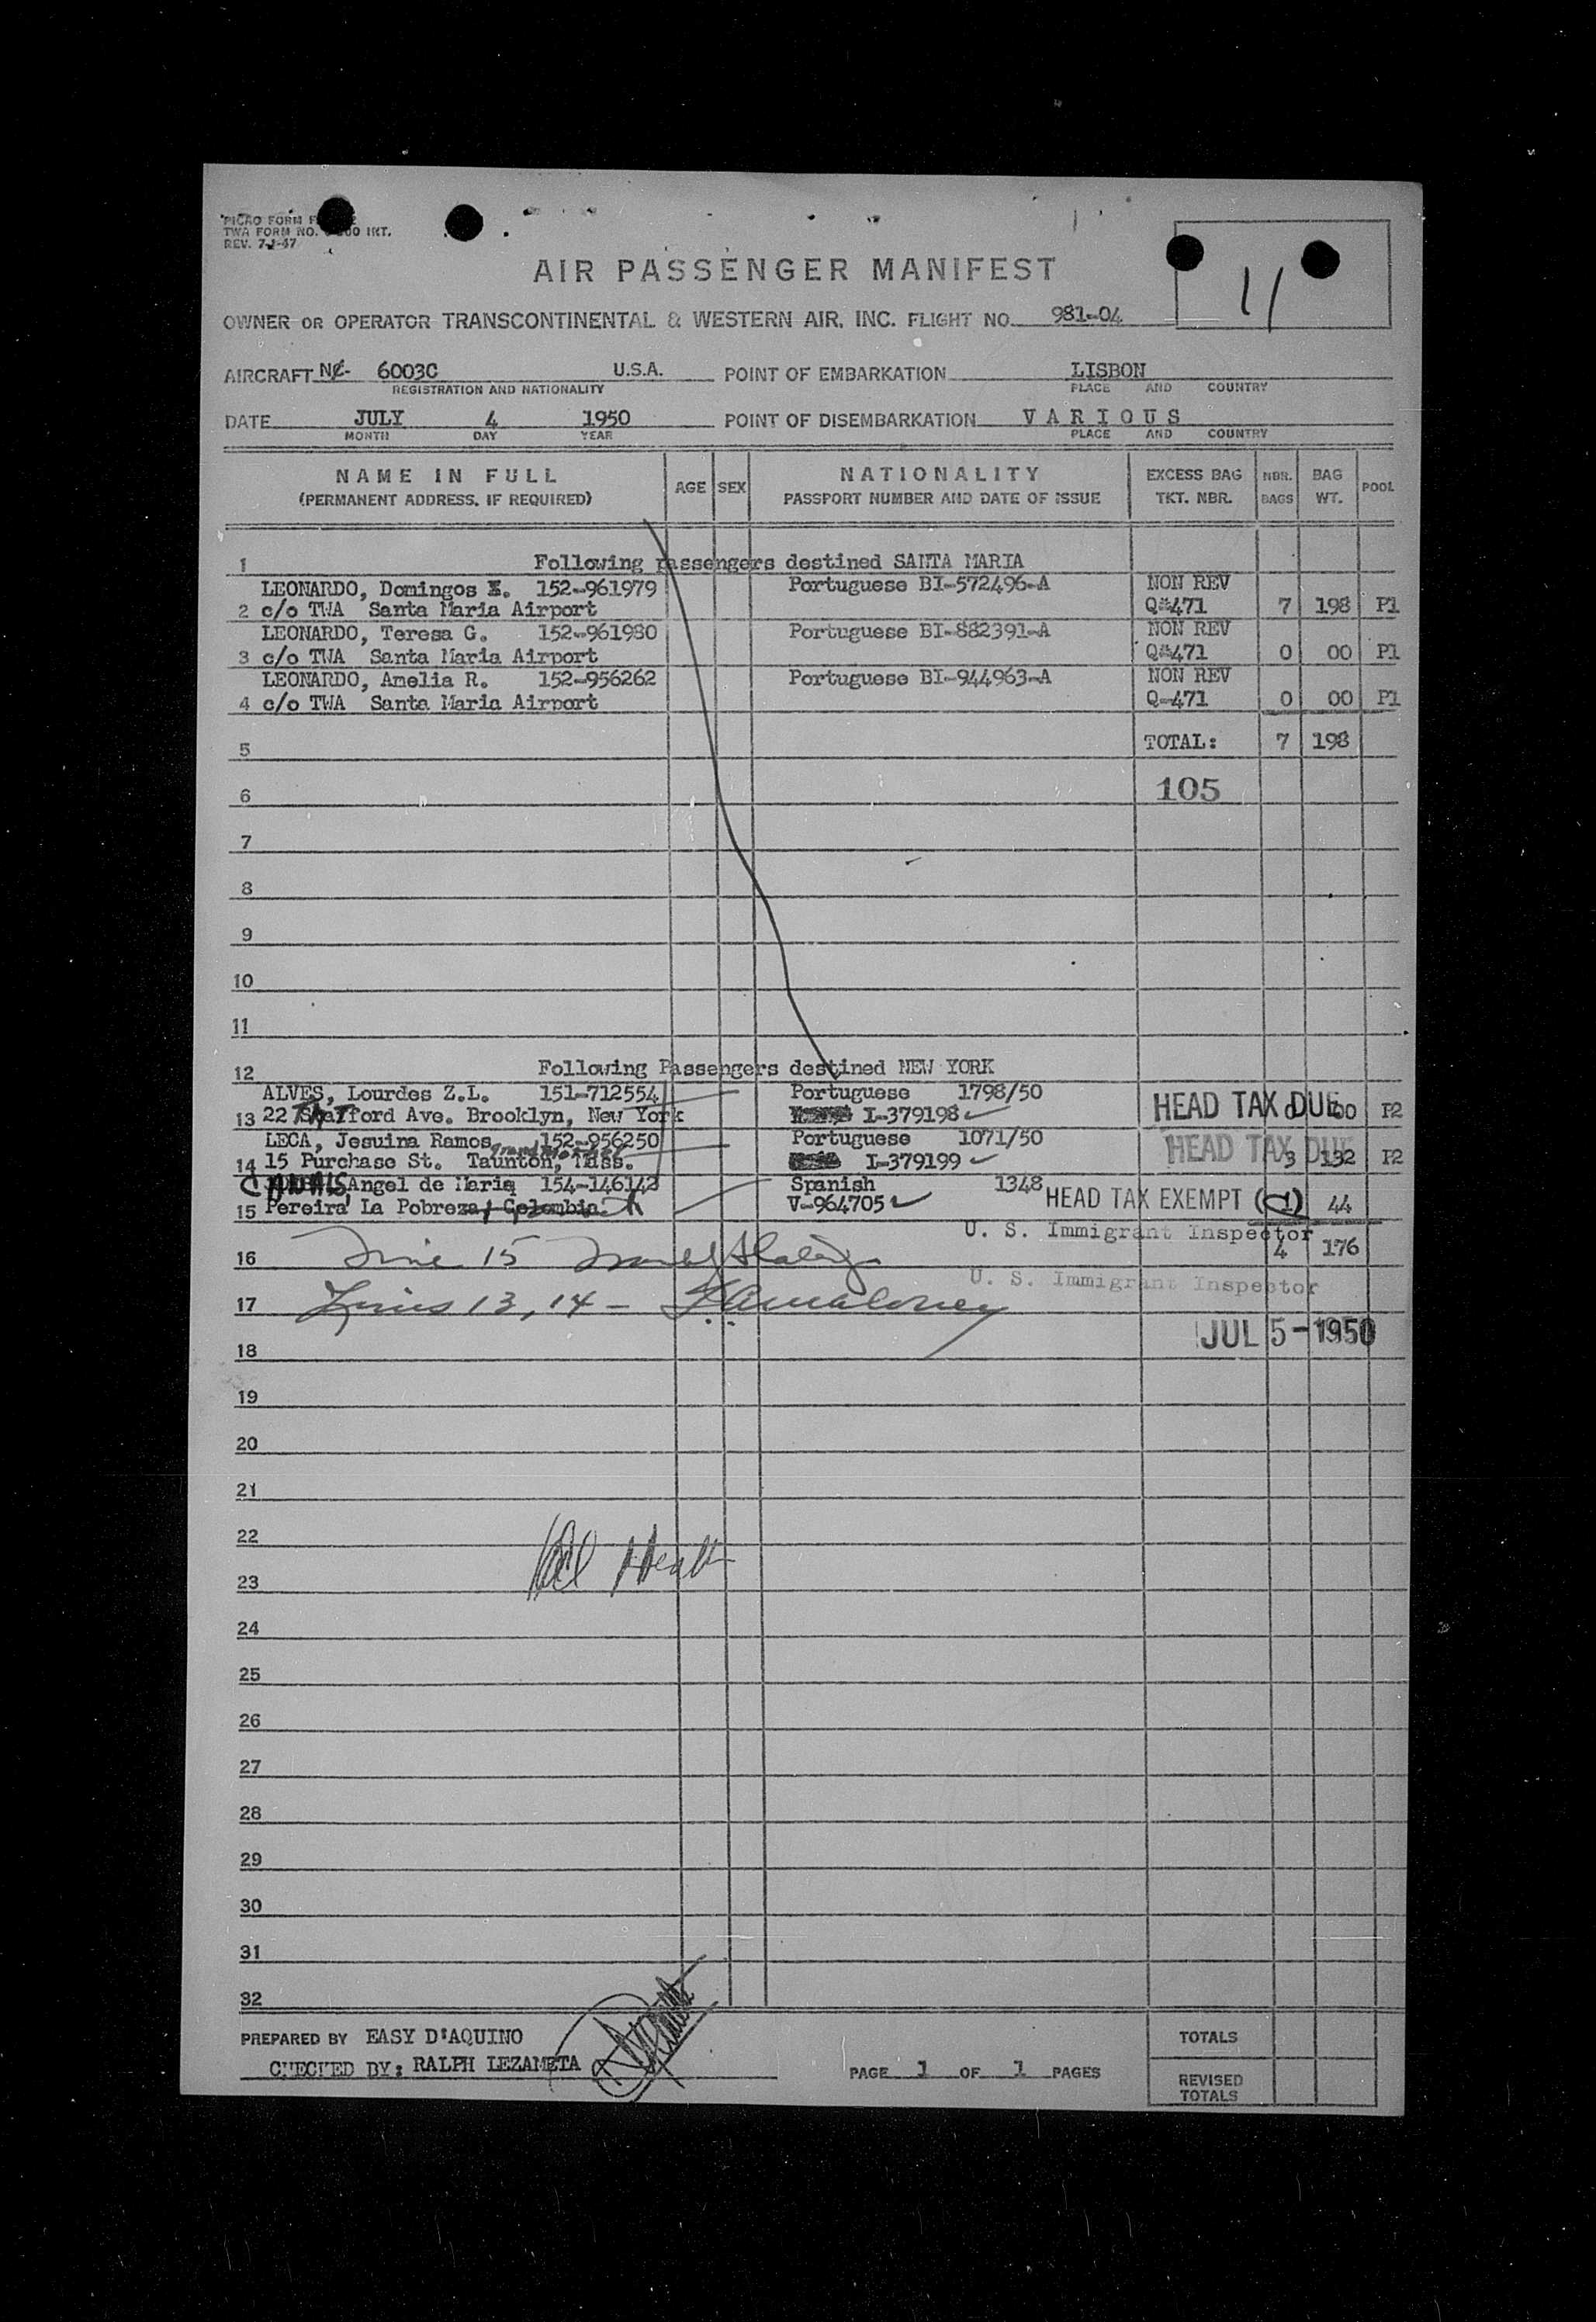 PICAO FORM
TWA FORM NO. INT.
REV. 7-1-47
AIR PASSENGER MANIFEST
11
OWNER OR OPERATOR TRANSCONTINENTAL & WESTERN AIR, INC. FLIGHT NO. 981-04
AIRCRAFT NC- 6003C U.S.A. POINT OF EMBARKATION LISBON
REGISTRATION AND NATIONALITY PLACE AND COUNTRY
DATE JULY 4 1950 POINT OF DISEMBARKATION VARIOUS
MONTH DAY YEAR PLACE AND COUNTRY
NAME IN FULL AGE SEX NATIONALITY EXCESS BAG NBR. BAG POOL
(PERMANENT ADDRESS, IF REQUIRED) PASSPORT NUMBER AND DATE OF ISSUE TKT. NBR. BAGS WT.
1 Following passengers destined SANTA MARIA
LEONARDO, Domingos 152-961979 Portuguese BI-572496-A NON REV
2 c/o TWA Santa Maria Airport Q-471 7 198 P1
LEONARDO, Teresa G. 152-961980 Portuguese BI-882391-A NON REV
3 c/o TWA Santa Maria Airport Q-471 0 00 P1
LEONARDO, Amelia R. 152-956262 Portuguese BI-944963-A NON REV
4 c/o TWA Santa Maria Airport Q-471 0 00 P1
5 TOTAL: 7 198
6 105
7
8
9
10
11
12 Following Passengers destined NEW YORK
ALVES, Lourdes Z.L. 151-712554 Portuguese 1798/50
13 22 Ave. Brooklyn, New York I-379198 HEAD TAX DUE 0 00 P2
LECA, Jesuina Ramos 152-956250 Portuguese 1071/50
14 15 Purchase St. Taunton, Mass. I-379199 HEAD TAX DUE 3 132 P2
Angel de Maria 154-146142 Spanish 1348
15 Pereira La Pobreza, Colombia V-964705 HEAD TAX EXEMPT (1) 44
U. S. Immigrant Inspector
16 Line 15 4 176
U. S. Immigrant Inspector
17 Lines 13, 14 -
JUL 5-1950
18
19
20
21
22
23
24
25
26
27
28
29
30
31
32
PREPARED BY EASY D'AQUINO TOTALS
CHECKED BY: RALPH LEZAMETA PAGE 1 OF 1 PAGES REVISED
TOTALS